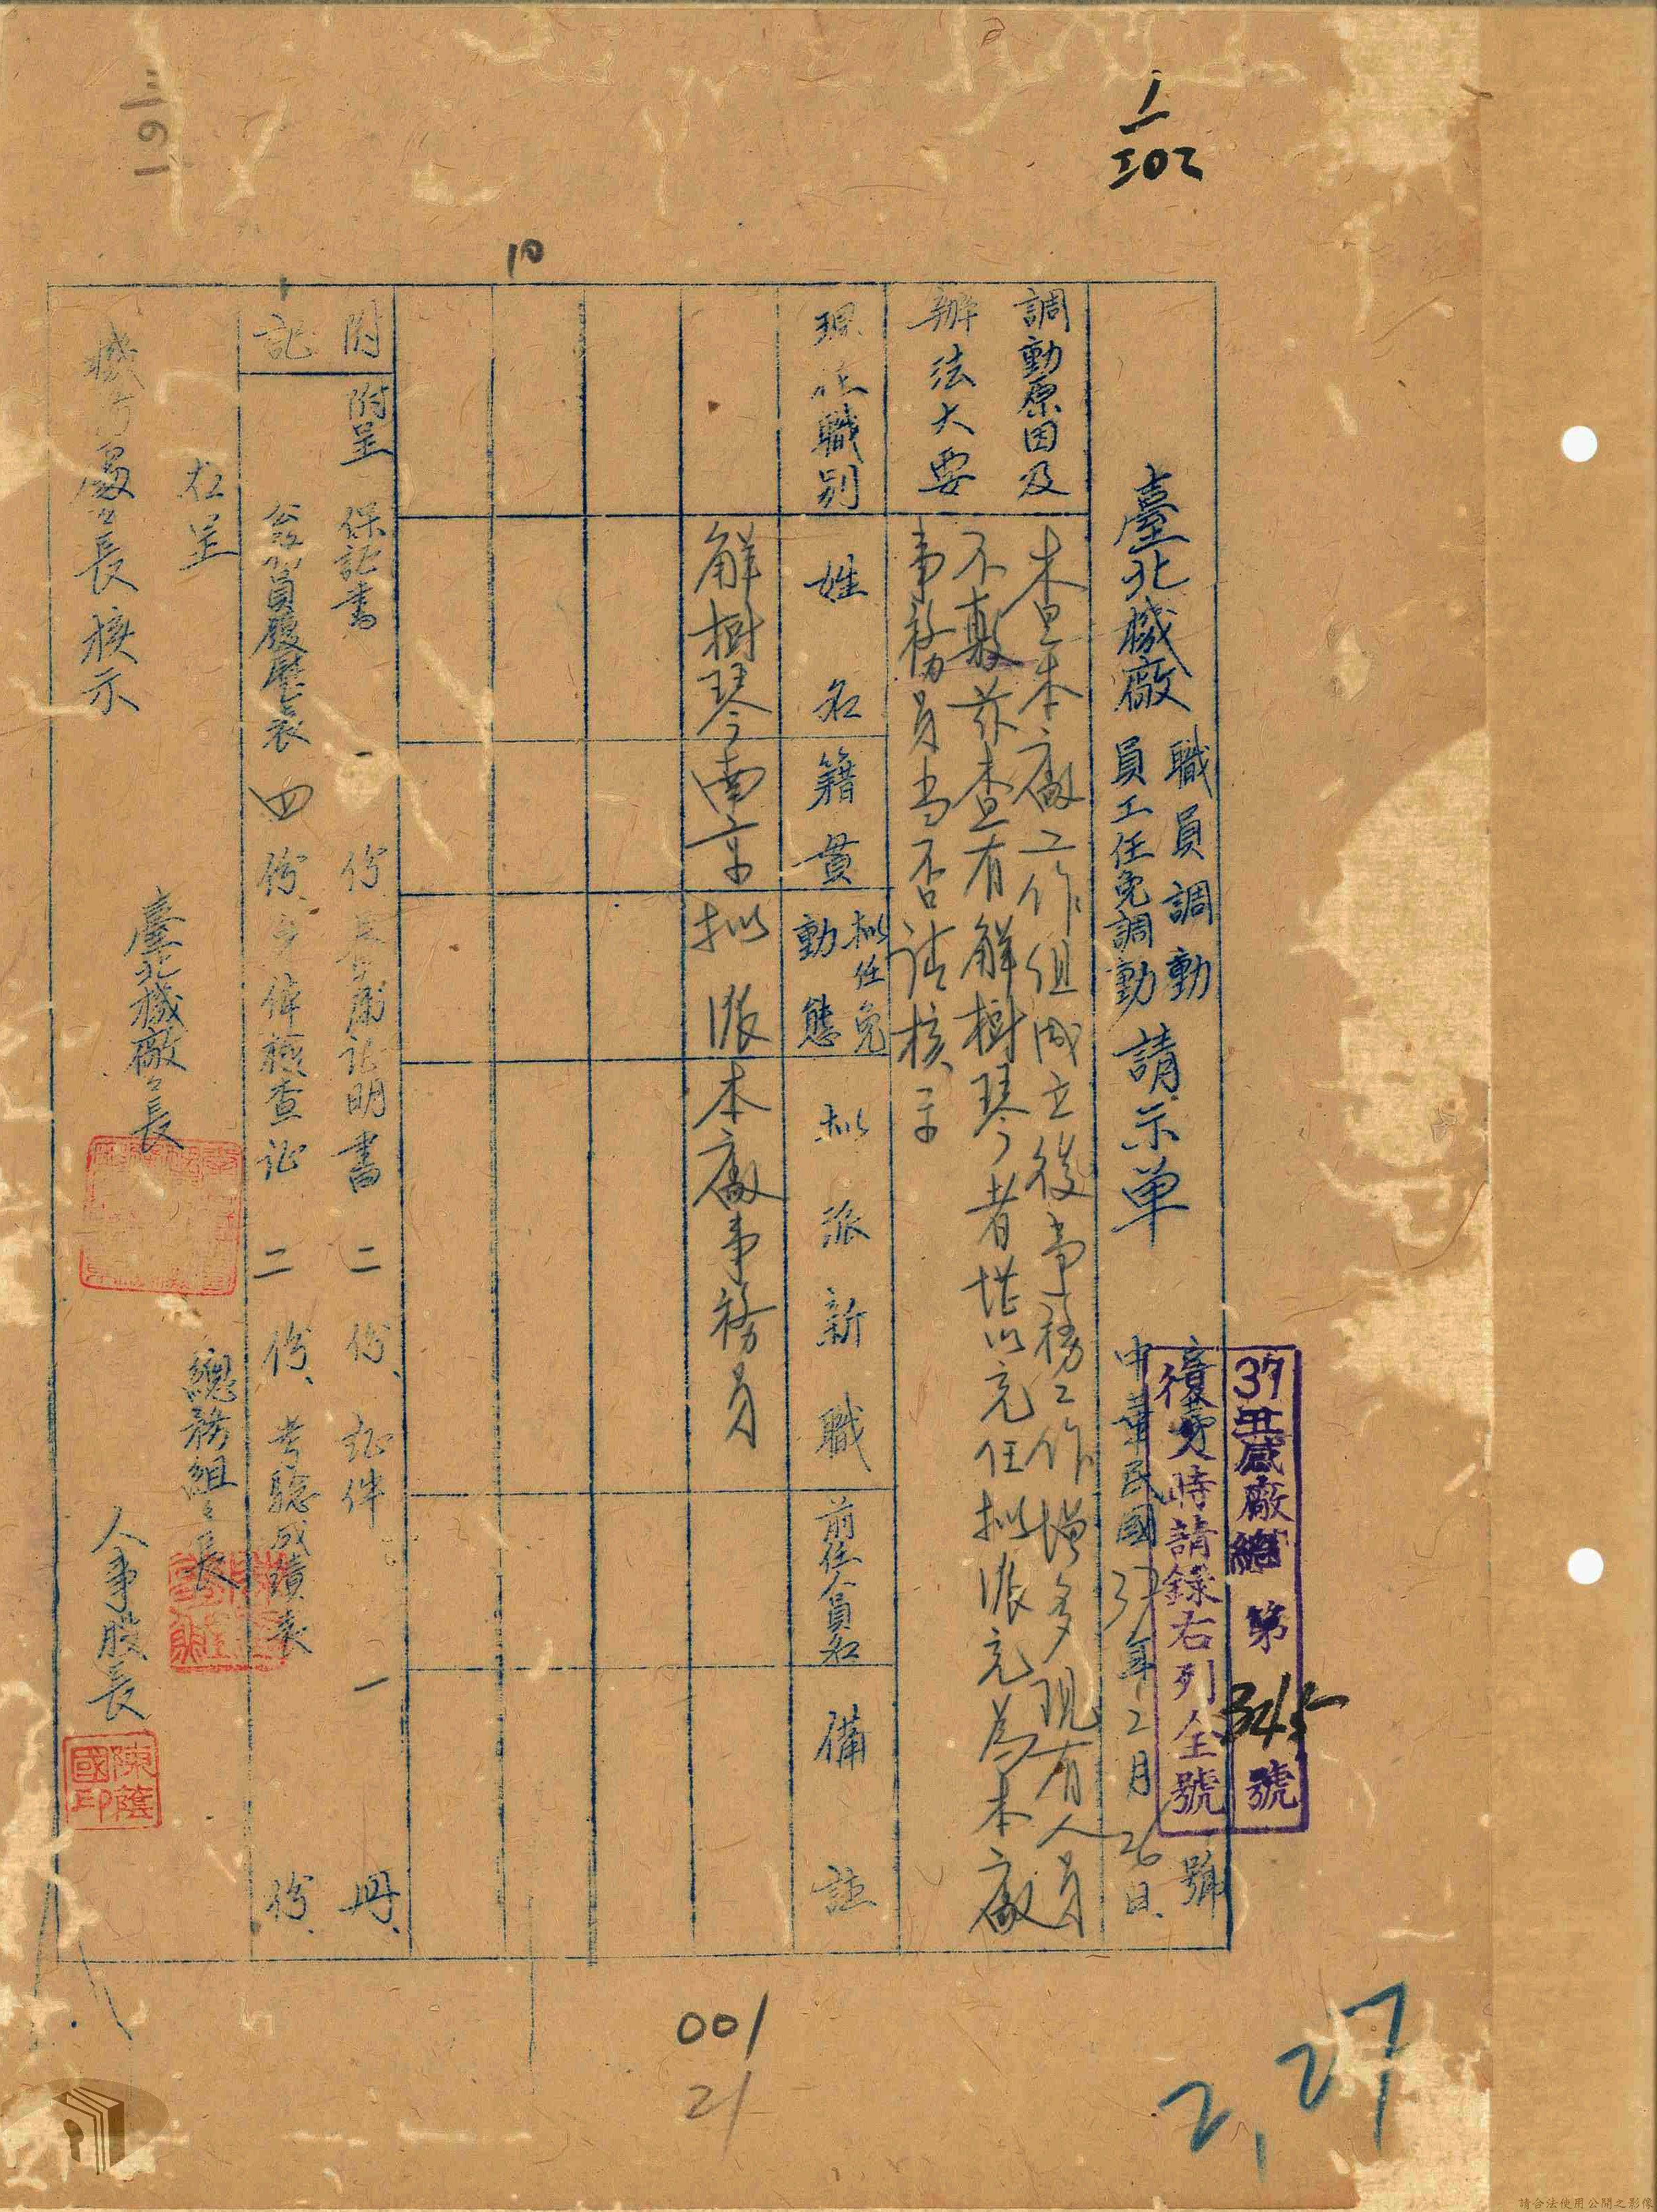 1/302
161
10
37丑感廠總第345號
復文時請錄右列全號
號
臺北機廠 職員調動 員工任免調動 請示單
中華民國37年2月26日
調動原因及辦法大要
本廠工作組成立後事務工作增多現有人員
不敷茲查有解樹琴者堪以充任擬派充為本廠
事務員当否請核示
現任職別
姓名
籍貫
擬任免動態
擬派新職
前任人員名
備註
解樹琴
南京
擬派
本廠事務員
附記
附呈 保証書一份、
証明書二份、証件一冊、
公務員履歷表四份、
身体檢查証二份、考驗成績表 份、
右呈
處處長核示
臺北機廠廠長
總務組組長
人事股長
陳蔭國印
001
21
2,27
請合法使用公開之影像